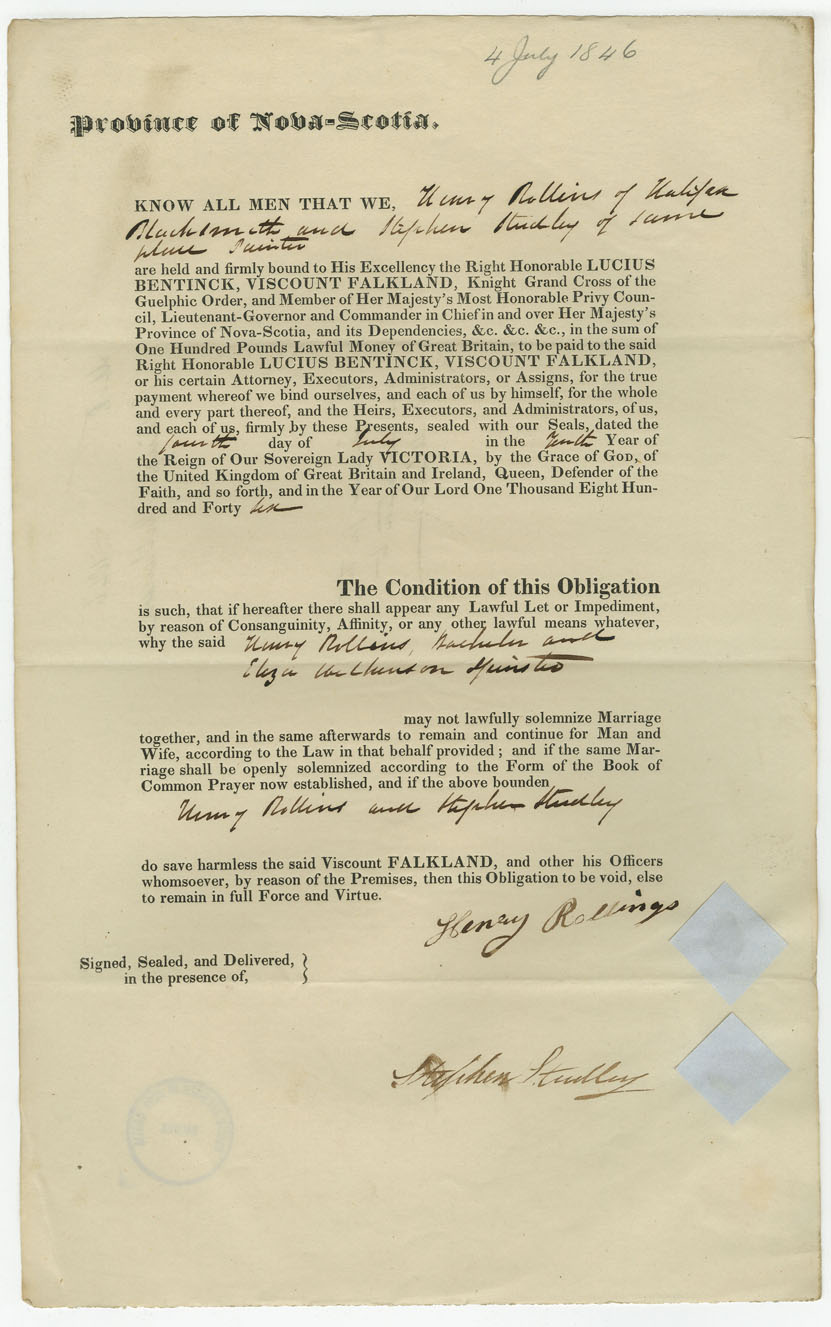 4 July 1846
Province of Nova-Scotia.
KNOW ALL MEN THAT WE, Henry Rollins of Halifax
Blacksmith and Stephen Studley of same
place Painter
are held and firmly bound to His Excellency the Right Honorable LUCIUS
BENTINCK, VISCOUNT FALKLAND, Knight Grand Cross of the
Guelphic Order, and Member of Her Majesty's Most Honorable Privy Coun-
cil, Lieutenant-Governor and Commander in Chief in and over Her Majesty's
Province of Nova-Scotia, and its Dependencies, &c. &c. &c., in the sum of
One Hundred Pounds Lawful Money of Great Britain, to be paid to the said
Right Honorable LUCIUS BENTINCK, VISCOUNT FALKLAND,
or his certain Attorney, Executors, Administrators, or Assigns, for the true
payment whereof we bind ourselves, and each of us by himself, for the whole
and every part thereof, and the Heirs, Executors, and Administrators, of us,
and each of us, firmly by these Presents, sealed with our Seals, dated the
fourth day of July in the Tenth Year of
the Reign of Our Sovereign Lady VICTORIA, by the Grace of GOD, of
the United Kingdom of Great Britain and Ireland, Queen, Defender of the
Faith, and so forth, and in the Year of Our Lord One Thousand Eight Hun-
dred and Forty six
The Condition of this Obligation
is such, that if hereafter there shall appear any Lawful Let or Impediment,
by reason of Consanguinity, Affinity, or any other lawful means whatever,
why the said Henry Rollins, Bachelor and
Eliza Wilkinson Spinster
may not lawfully solemnize Marriage
together, and in the same afterwards to remain and continue for Man and
Wife, according to the Law in that behalf provided; and if the same Mar-
riage shall be openly solemnized according to the Form of the Book of
Common Prayer now established, and if the above bounden
Henry Rollins and Stephen Studley
do save harmless the said Viscount FALKLAND, and other his Officers
whomsoever, by reason of the Premises, then this Obligation to be void, else
to remain in full Force and Virtue.
Henry Rollings
Signed, Sealed, and Delivered,
in the presence of,
Stephen Studley